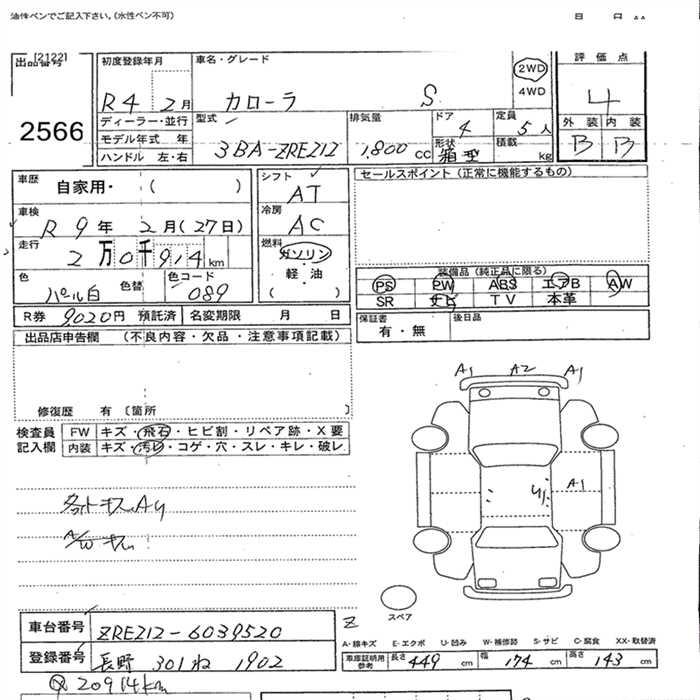 油性ペンでご記入下さい。(水性ペン不可) 月 日
出品番号 [2122] 初度登録年月 車名・グレード 2WD 評価点
R4 2月 カローラ S 4WD 4
2566 ディーラー・並行 型式 排気量 ドア 定員 外装 内装
モデル年式 年 3BA-ZRE212 1,800cc 4 5人 B B
ハンドル 左・右 形状 箱型 積載 kg
車歴 自家用・( ) シフト AT セールスポイント(正常に機能するもの)
車検 R9年 2月(27日) 冷房 AC
走行 2万0千914km 燃料 ガソリン・軽・油 ( )
装備品(純正品に限る)
色 パール白 色替 色コード 089 PS PW ABS エアB AW
SR ナビ TV 本革
R券 9020円 預託済 名変期限 月 日 保証書 有・無 後日品
出品店申告欄 (不良内容・欠品・注意事項記載)
A1 A2 A1
修復歴 有 〔箇所 〕
検査員記入欄 FW キズ・飛石・ヒビ割・リペア跡・X要
内装 キズ・汚レ・コゲ・穴・スレ・キレ・破レ
A1
キスAU
A/W キス
スペア
車台番号 ZRE212-6039520
A-線キズ E-エクボ U-凹み W-補修跡 S-サビ C-腐食 XX-取替済
登録番号 長野 301 ね 1902
車庫証明用参考 長さ 449cm 幅 174cm 高さ 143cm
20914km